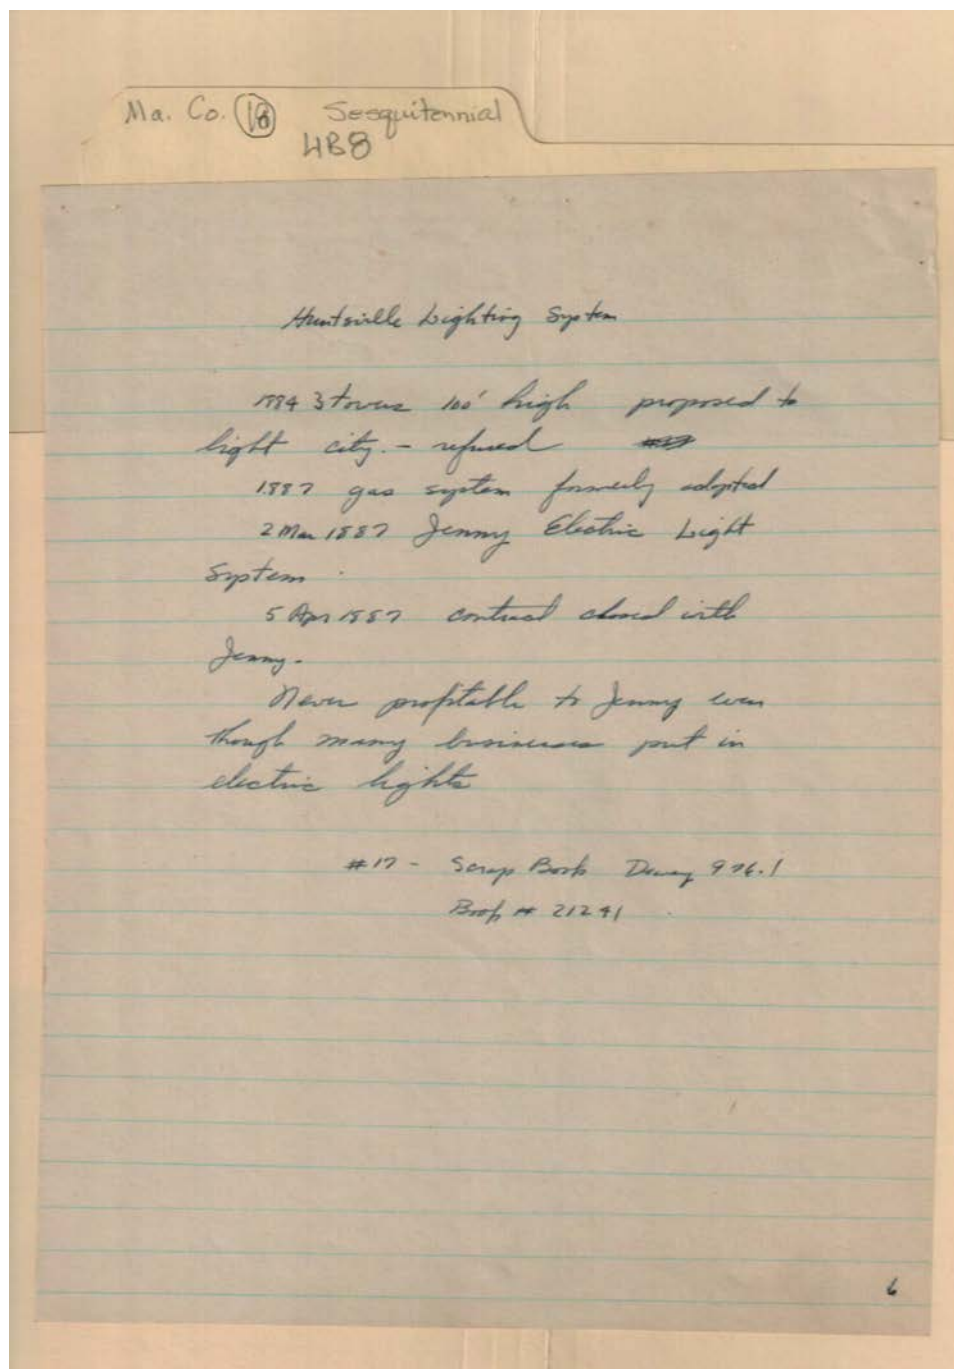 Ma. Co. 18 Sesquitennial
4B8
Huntsville Lighting System
1884 3 towers 100' high proposed to
light city. - refused
1887 gas system formerly adopted
2 Mar 1887 Jenny Electric Light
System
5 Apr 1887 contract closed with
Jenny.
Never profitable to Jenny even
though many businesses put in
electric lights
#17 - Scrap Book Dewey 976.1
Book # 21241
6